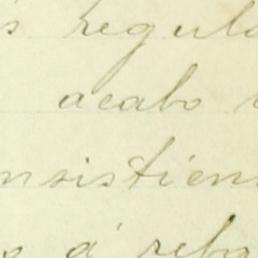 s regula
acabo
nsistien
s á reba